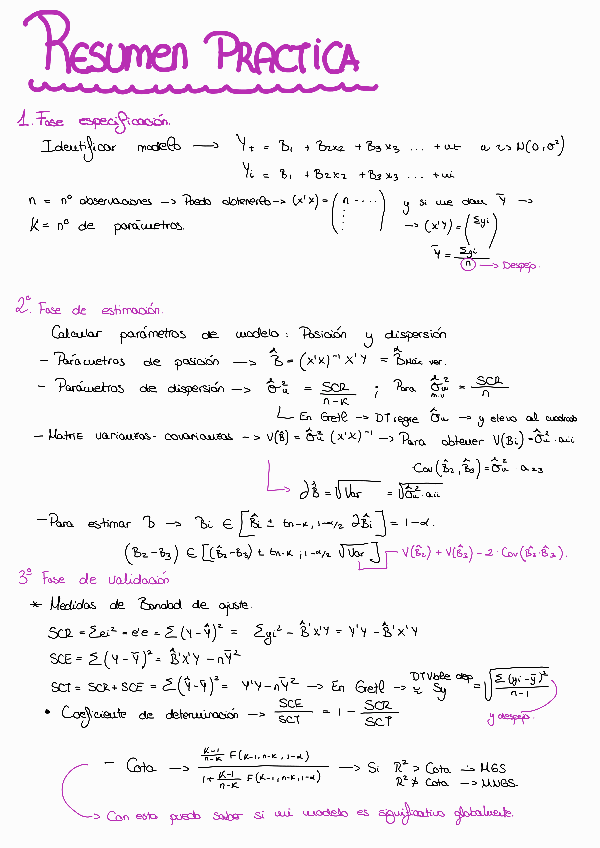 RESUMEN PRACTICA
1. Fase especificación.
Identificar modelo → Yt = B1 + B2x2 + B3x3 ... + ut u ~> N(0, σ²)
Yi = B1 + B2x2 + B3x3 ... + ui
n = nº observaciones → Puedo obtenerlo → (x'x) = (n ---- y si me dan Ȳ →
K = nº de parámetros. → (x'Y) = (Σyi)
Ȳ = Σyi / n → Despejo.
2ª Fase de estimación.
Calcular parámetros de modelo: Posición y dispersión
- Parámetros de posición → B̂ = (X'X)⁻¹ X'Y = B̂ Máx ver.
- Parámetros de dispersión → σ̂²u = SCR / n-K ; Para σ̂²u m.v = SCR / n
En Gretl → DT regre σ̂u → y elevo al cuadrado
- Matriz varianzas-covarianzas → V(B̂) = σ̂²u (X'X)⁻¹ → Para obtener V(Bi) = σ̂²u · aii
Cov(B̂2, B̂3) = σ̂²u a23
∂B̂ = √Var = √σ̂²u · aii
- Para estimar B → Bi ∈ [B̂i ± tn-K, 1-α/2 ∂B̂i] = 1-α.
(B2-B3) ∈ [(B̂2-B̂3) ± tn-K ; 1-α/2 √Var] V(B̂2) + V(B̂3) - 2·Cov(B̂2·B̂3).
3ª Fase de validación
* Medidas de Bondad de ajuste.
SCR = Σei² = e'e = Σ(Y-Ŷ)² = Σyi² - B̂'X'Y = Y'Y - B̂'X'Y
SCE = Σ(Y-Ȳ)² = B̂'X'Y - nȲ²
SCT = SCR + SCE = Σ(Ŷ-Ȳ)² = Y'Y - nȲ² → En Gretl → DT Vble dep ≈ Sy = √Σ(yi-ȳ)² / n-1
• Coeficiente de determinación → SCE / SCT = 1 - SCR / SCT y despejo.
- Cota → K-1 / n-K F(K-1, n-K, 1-α) / 1 + K-1 / n-K F(K-1, n-K, 1-α) → Si R² > Cota ∴ MGS
R² ≯ Cota → MNGS.
→ Con esto puedo saber si mi modelo es significativo globalmente.